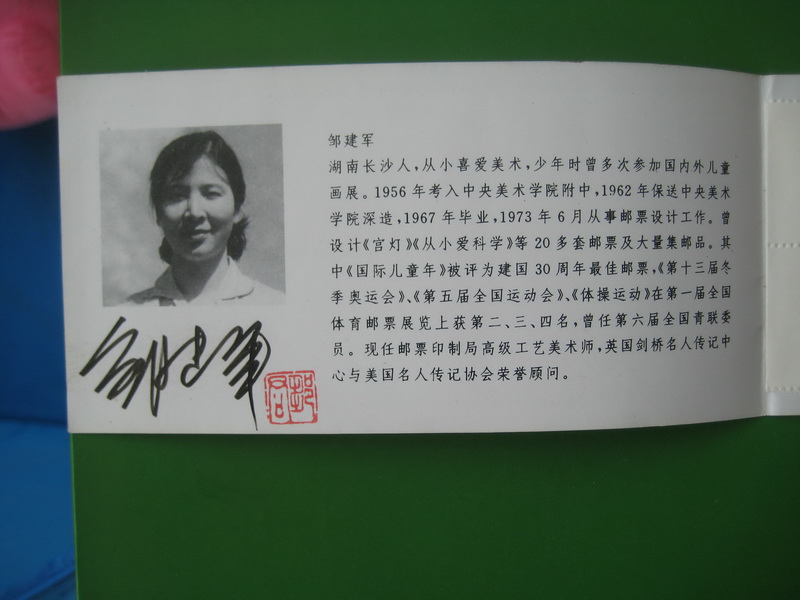 邹建军
湖南长沙人，从小喜爱美术，少年时曾多次参加国内外儿童
画展。1956 年考入中央美术学院附中，1962 年保送中央美术
学院深造，1967 年毕业，1973 年 6 月从事邮票设计工作。曾
设计《宫灯》《从小爱科学》等 20 多套邮票及大量集邮品。其
中《国际儿童年》被评为建国 30 周年最佳邮票，《第十三届冬
季奥运会》、《第五届全国运动会》、《体操运动》在第一届全国
体育邮票展览上获第二、三、四名，曾任第六届全国青联委
员。现任邮票印制局高级工艺美术师，英国剑桥名人传记中
心与美国名人传记协会荣誉顾问。
邹建军